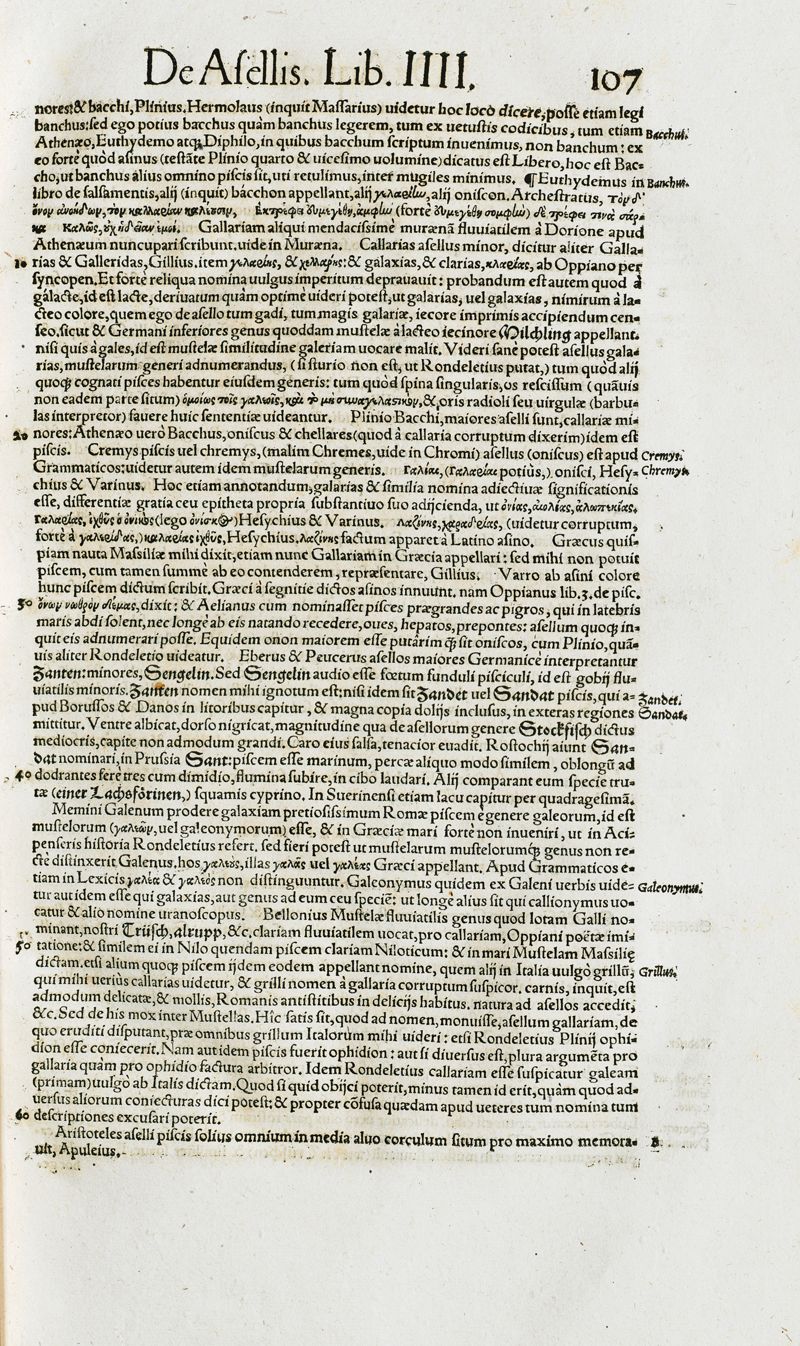 De Aſellis. Lib. IIII. 107
nores: & bacchi, Plinius. Hermolaus (inquit Maſſarius) uidetur hoc loco dicere, poſſe etiam legi
banchus: ſed ego potius bacchus quàm banchus legerem, tum ex uetuſtis codicibus, tum etiam Bacchus.
Athenæo, Euthydemo atq; Diphilo, in quibus bacchum ſcriptum inuenimus, non banchum: ex
eo fortè quòd aſinus (teſtãte Plinio quarto & uiceſimo uolumine) dicatus eſt Libero, hoc eſt Bac-
cho, ut banchus alius omnino piſcis ſit, uti retulimus, inter mugiles minimus. ¶ Euthydemus in Banchus.
libro de ſalſamentis, alij (inquit) bacchon appellant, alij γελαρίην, alij oniſcon. Archeſtratus, τὸν δ᾽
ὄνον ἀνθηδὼν, τὸν καλλαρίαν καλέουσιν, Ἐκτρέφει (fortè δὲ τρέφει
Καλῶς, Gallariam aliqui mendaciſsimè murænã fluuiatilem à Dorione apud
Athenæum nuncupari ſcribunt. uide in Muræna. Callarias aſellus minor, dicitur aliter Galla-
10 rias & Galleridas, Gillius. item γελαρίης, & χελλαρης: & galaxias, & clarias, κλαρίας, ab Oppiano per
ſyncopen. Et fortè reliqua nomina uulgus imperitum deprauauit: probandum eſt autem quod à
gálacte, id eſt lacte, deriuatum quàm optimè uideri poteſt, ut galarias, uel galaxias, nimirum à la-
cteo colore, quem ego de aſello tum gadi, tum magis galariæ, iecore imprimis accipiendum cen-
ſeo. ſicut & Germani inferiores genus quoddam muſtelæ à lacteo iecinore Milchling appellant.
niſi quis à gales, id eſt muſtelæ ſimilitudine galeriam uocare malit. Videri ſanè poteſt aſellus gala-
rias, muſtelarum generi adnumerandus, (ſi ſturio non eſt, ut Rondeletius putat,) tum quòd alij
quoq; cognati piſces habentur eiuſdem generis: tum quòd ſpina ſingularis, os reſciſſum (quãuis
non eadem parte ſitum) ὁμοίως τοῖς γαλεοῖς, καὶ τὸ μὴ συναγελαστικὸν, & oris radioli ſeu uirgulæ (barbu-
las interpretor) fauere huic ſententiæ uideantur. Plinio Bacchi, maiores aſelli ſunt, callariæ mi-
20 nores: Athenæo uerò Bacchus, oniſcus & chellares (quod à callaria corruptum dixerim) idem eſt
piſcis. Cremys piſcis uel chremys, (malim Chremes, uide in Chromi) aſellus (oniſcus) eſt apud Cremys.
Grammaticos: uidetur autem idem muſtelarum generis. Γαλίαι, (Γαλαρίαι potiùs,) oniſci, Heſy- Chremys.
chius & Varinus. Hoc etiam annotandum, galarias & ſimilia nomina adiectiuæ ſignificationis
eſſe, differentiæ gratia ceu epitheta propria ſubſtantiuo ſuo adijcienda, ut ὀνίας, αἰολίας, ἀλωπεκίας.
Γαλαρίας, ἰχθῦς ὁ ὀνικὸς (lego ὀνίσκος) Heſychius & Varinus. Λαζίνης, χαραδρίας, (uidetur corruptum,
fortè à γαλερίδας,) καλαρίας ἰχθῦς, Heſychius. λαζίνης factum apparet à Latino aſino. Græcus quiſ-
piam nauta Maſsiliæ mihi dixit, etiam nunc Gallariam in Græcia appellari: ſed mihi non potuit
piſcem, cum tamen ſummè ab eo contenderem, repræſentare, Gillius. Varro ab aſini colore
hunc piſcem dictum ſcribit. Græci à ſegnitie dictos aſinos innuunt. nam Oppianus lib. 3. de piſc.
30 ὄνων νωθρὸν δέμας, dixit: & Aelianus cum nominaſſet piſces prægrandes ac pigros, qui in latebris
maris abdi ſolent, nec longè ab eis natando recedere, oues, hepatos, prepontes: aſellum quoq; in-
quit eis adnumerari poſſe. Equidem onon maiorem eſſe putârim q̃ ſit oniſcos, cum Plinio, quã-
uis aliter Rondeletio uideatur. Eberus & Peucerus aſellos maiores Germanicè interpretantur
Zanten: minores, Sengelin. Sed Sengelin audio eſſe fœtum funduli piſciculi, id eſt gobij flu-
uiatilis minoris. Zanten nomen mihi ignotum eſt: niſi idem ſit Zandet uel Sandat piſcis, qui a- Zandet.
pud Boruſſos & Danos in litoribus capitur, & magna copia dolijs incluſus, in exteras regiones Sandat.
mittitur. Ventre albicat, dorſo nigricat, magnitudine qua de aſellorum genere Stockfiſch dictus
mediocris, capite non admodum grandi. Caro eius ſalſa, tenacior euadit. Roſtochij aiunt San-
dat nominari, in Pruſsia Sant: piſcem eſſe marinum, percæ aliquo modo ſimilem, oblongũ ad
40 dodrantes ferè tres cum dimidio, flumina ſubire, in cibo laudari. Alij comparant eum ſpecie tru-
tæ (einer Lachsförinen,) ſquamis cyprino. In Suerinenſi etiam lacu capitur per quadrageſimã.
Memini Galenum prodere galaxiam pretioſiſsimum Romæ piſcem è genere galeorum, id eſt
muſtelorum (γαλεῶν, uel galeonymorum) eſſe, & in Græciæ mari fortè non inueniri, ut in Aci-
penſeris hiſtoria Rondeletius refert. ſed fieri poteſt ut muſtelarum muſtelorumq; genus non re-
ctè diſtinxerit Galenus. hos γαλεὸς, illas γαλᾶς uel γαλέας Græci appellant. Apud Grammaticos e-
tiam in Lexicis γαλέα & γαλεὸς non diſtinguuntur. Galeonymus quidem ex Galeni uerbis uide- Galeonymus.
tur aut idem eſſe qui galaxias, aut genus ad eum ceu ſpeciẽ: ut longè alius ſit qui callionymus uo-
catur & alio nomine uranoſcopus. Bellonius Muſtelæ fluuiatilis genus quod lotam Galli no-
minant, noſtri Trüſch, alrupp, &c. clariam fluuiatilem uocat, pro callariam, Oppiani poëtæ imi-
50 tatione: & ſimilem ei in Nilo quendam piſcem clariam Niloticum: & in mari Muſtelam Maſsiliẹ
dictam. etſi alium quoq; piſcem ijdem eodem appellant nomine, quem alij in Italia uulgò grillũ, Grillus.
qui mihi uerius callarias uidetur, & grilli nomen à gallaria corruptum ſuſpicor. carnis, inquit, eſt
admodum delicatæ, & mollis, Romanis antiſtitibus in delicijs habitus. natura ad aſellos accedit,
&c. Sed de his mox inter Muſtellas. Hîc ſatis ſit, quod ad nomen, monuiſſe, aſellum gallariam, de
quo eruditi diſputant, præ omnibus grillum Italorum mihi uideri: etſi Rondeletius Plinij ophi-
dion eſſe coniecerit. Nam aut idem piſcis fuerit ophidion: aut ſi diuerſus eſt, plura argumẽta pro
gallaria quàm pro ophidio factura arbitror. Idem Rondeletius callariam eſſe ſuſpicatur galeam
(primam) uulgò ab Italis dictam. Quod ſi quid obijci poterit, minus tamen id erit, quàm quod ad-
uerſus aliorum coniecturas dici poteſt: & propter cõfuſa quædam apud ueteres tum nomina tum
60 deſcriptiones excuſari poterit.
Ariſtoteles aſelli piſcis ſolius omnium in media aluo corculum ſitum pro maximo memora- B.
uit, Apuleius.